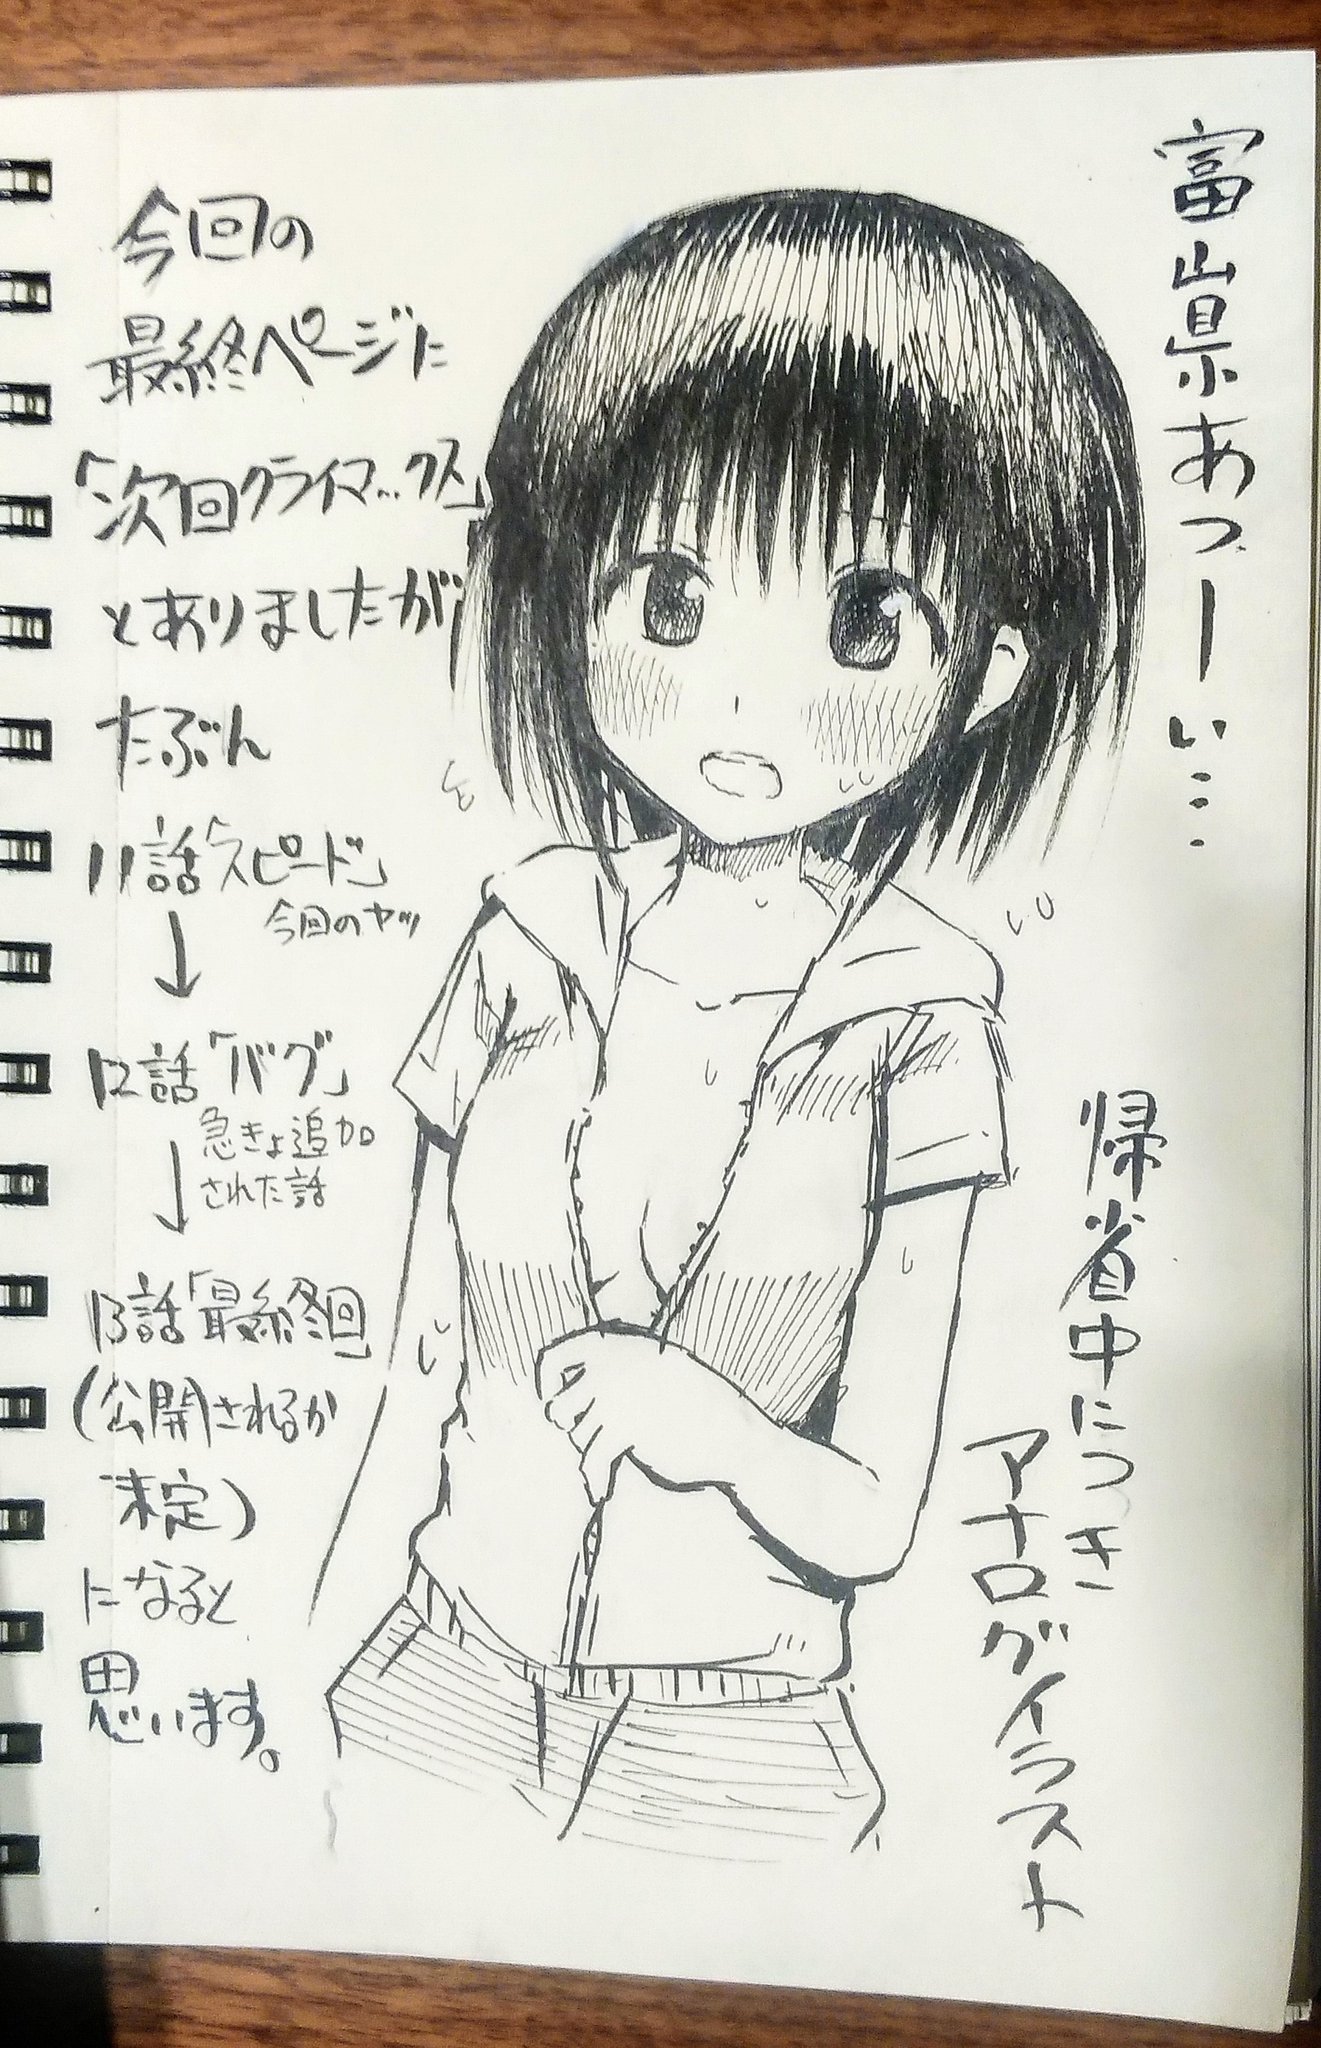 富山県あつーい…
帰省中につき
アナログイラスト
今回の
最終ページに
「次回クライマックス」
とありましたが
たぶん
11話「スピード」
今回のヤツ
↓
12話「バグ」
急きょ追加
された話
↓
13話「最終回」
(公開されるか
未定)
になると
思います。